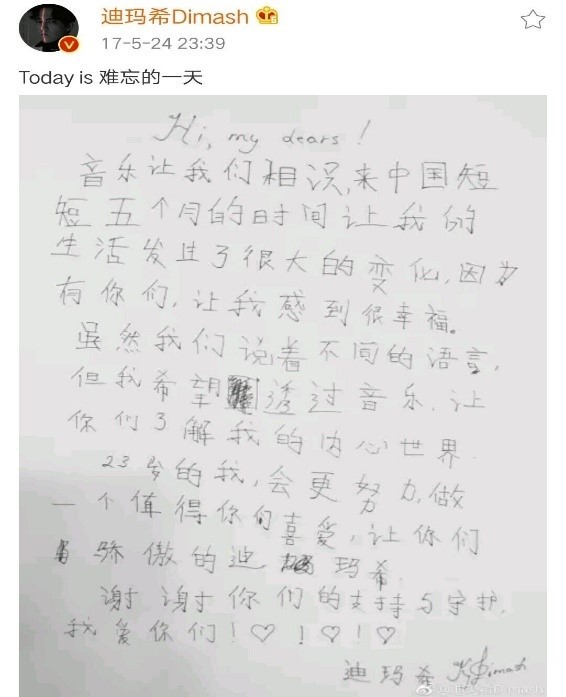 迪玛希Dimash
17-5-24 23:39
Today is 难忘的一天
Hi, my dears!
音乐让我们相识,来中国短
短五个月的时间让我的
生活发生了很大的变化,因为
有你们,让我感到很幸福。
虽然我们说着不同的语言,
但我希望透过音乐,让
你们了解我的内心世界.
23岁的我,会更努力,做
一个值得你们喜爱,让你们
骄傲的迪玛希.
谢谢你们的支持与守护.
我爱你们!♡!♡!♡
迪玛希 Dimash